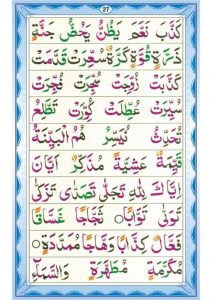 27
كَذَّبَ نَعَّمَ يَظُنُّ يَحُضُّ جَنَّةٍ
ذَرَّةٍ قُوَّةٍ كَرَّةٌ سُعِّرَتْ قَدَّمَتْ
كَذَّبَتْ زُوِّجَتْ سُجِّرَتْ فُجِّرَتْ
سُيِّرَتْ عُطِّلَتْ كُوِّرَتْ تَطَّلِعُ
تُحَدِّثُ يُيَسِّرُ هُمُ الْبَيِّنَةُ
قَيِّمَةٌ عَشِيَّةً مُذَكِّرٌ اَيَّانَ
اِيَّاكَ لِلّٰهِ تَجَلّٰى تَصَدّٰى تَزَكّٰى
تَوَلّٰى تَوَّابًا ۞ ثَجَّاجًا غَسَّاقًا
فَعَّالٌ كِذَّابًا وَهَّاجًا مُمَدَّدَةٍ ۞
مُكَرَّمَةٍ مُطَهَّرَةٍ وَالسَّمَآءِ